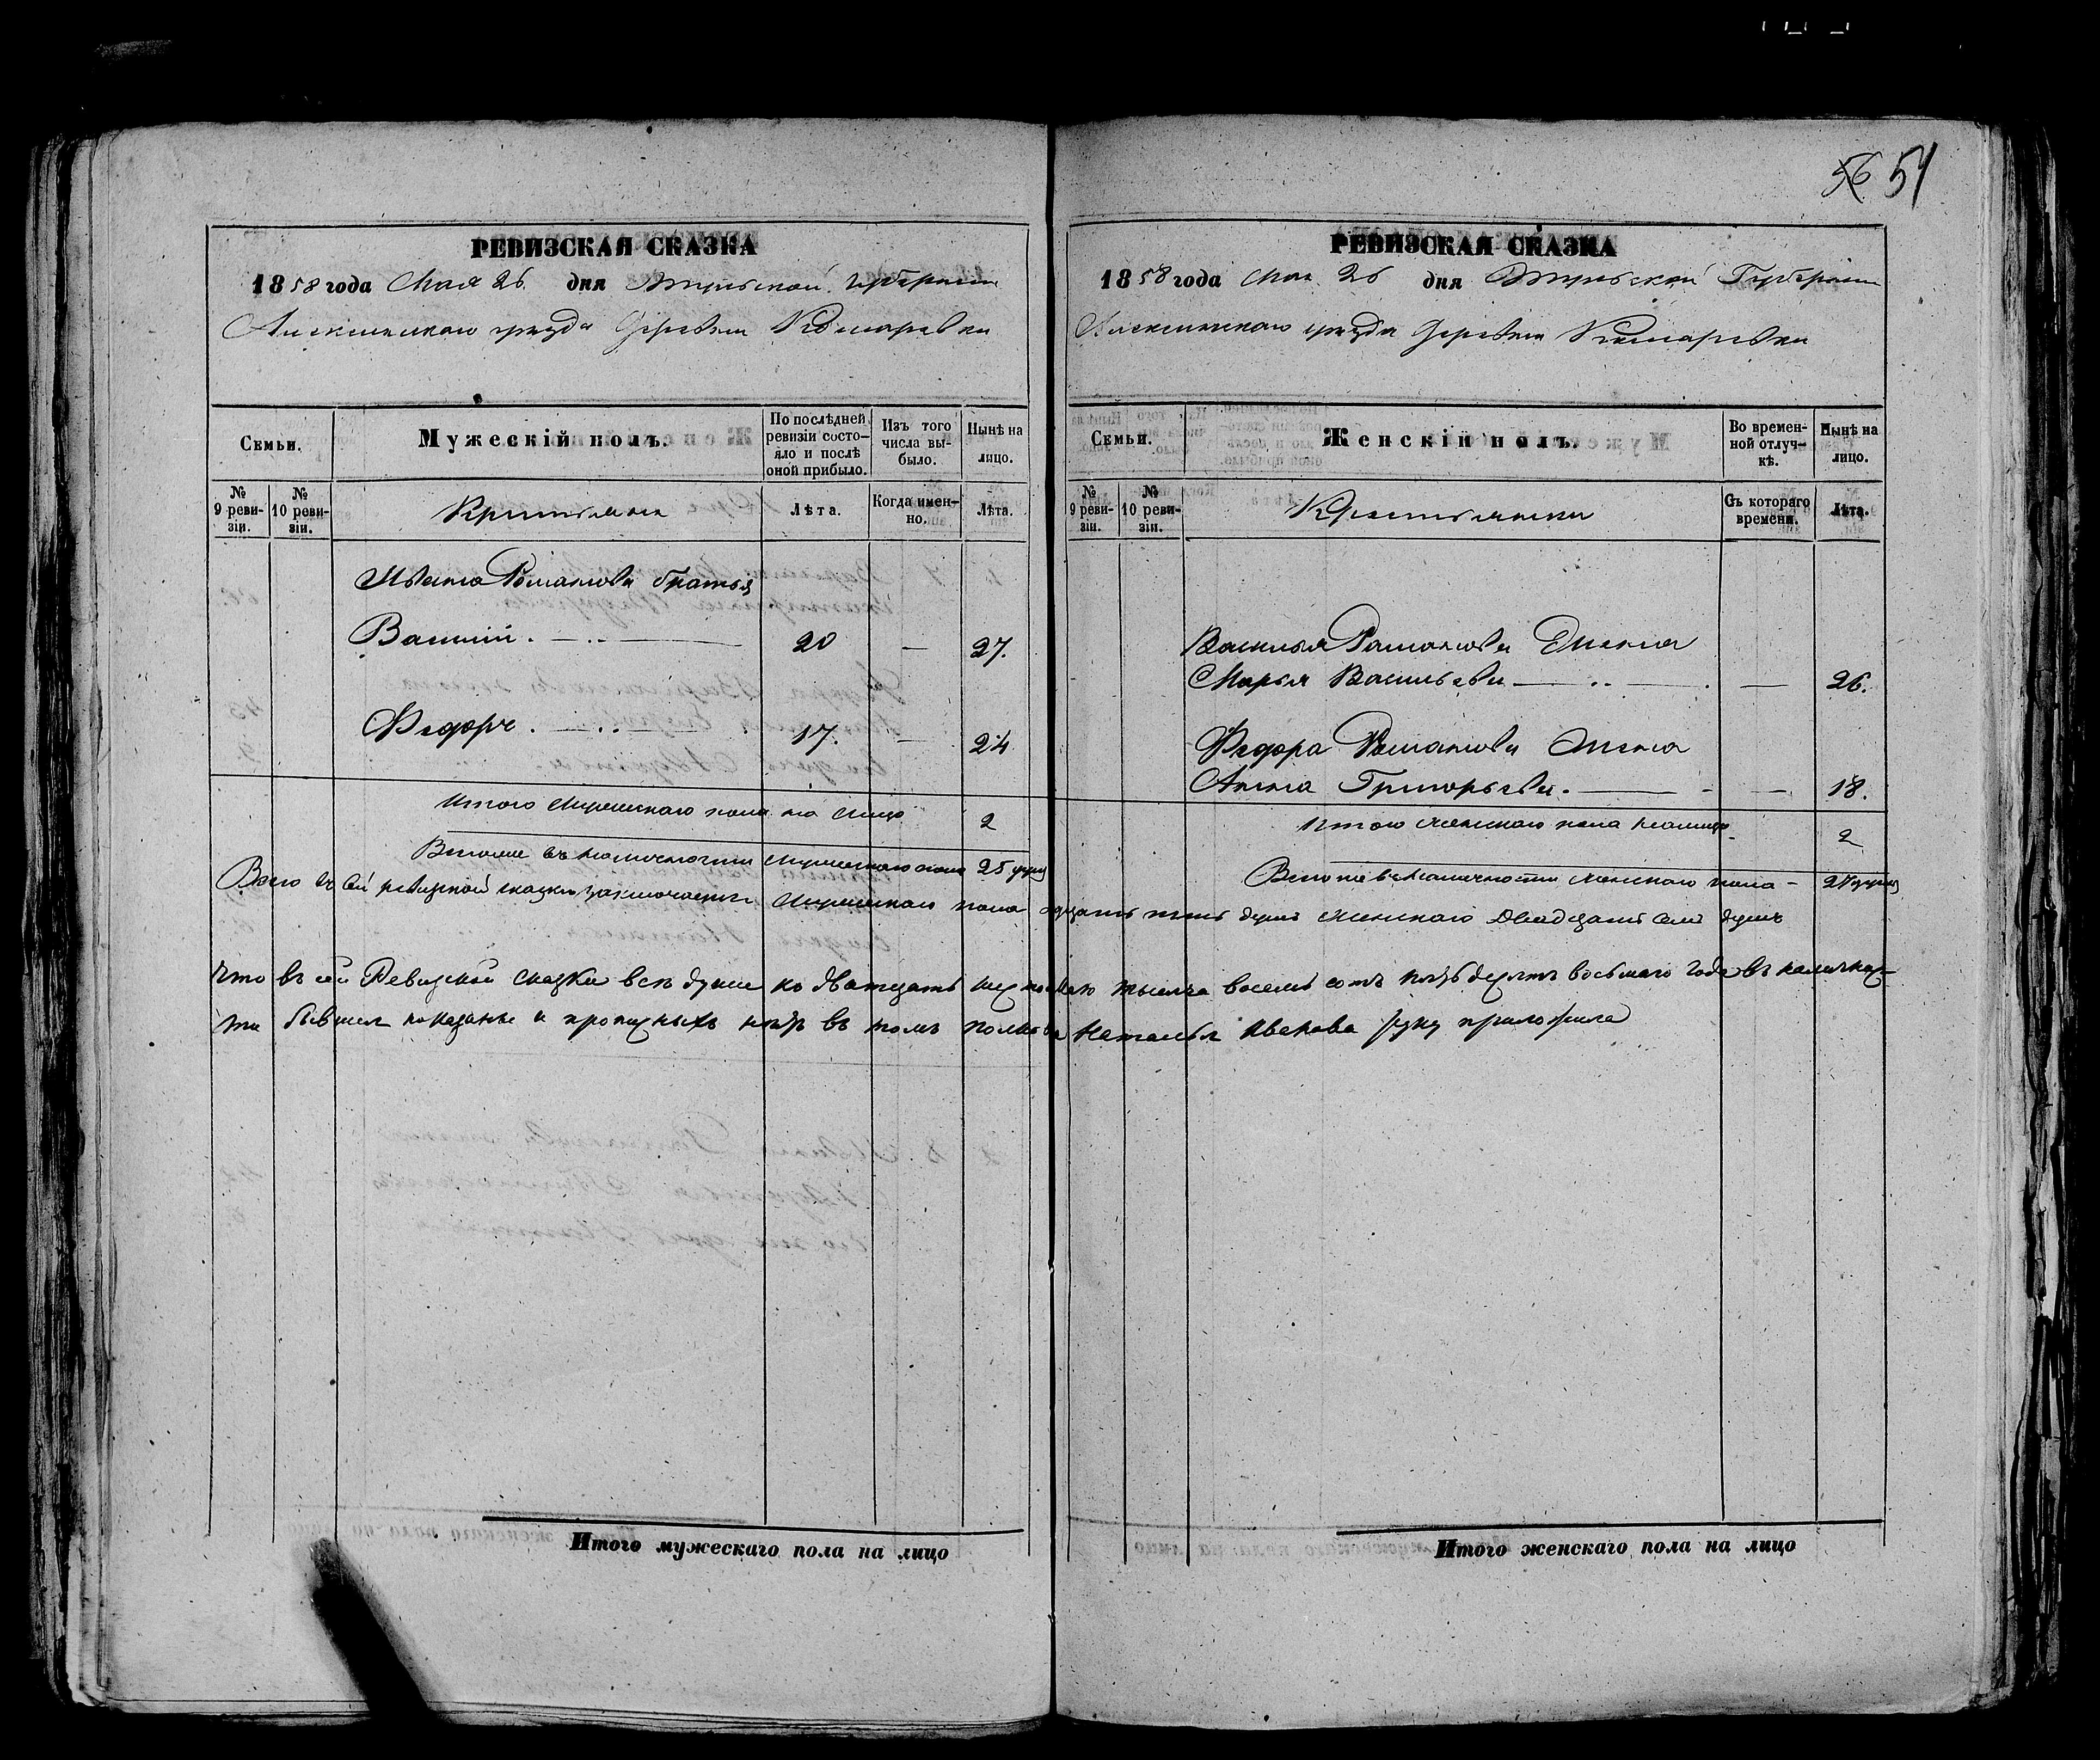 56 51
РЕВИЗСКАЯ СКАЗКА
1858 года Мая 26 дня Тульской губернии
Алексинскаго уезда Деревни Комаревки
Семьи.
Мужескій полъ.
По послѣдней ревизіи состояло и послѣ оной прибыло.
Изъ того числа выбыло.
Нынѣ на лицо.
№ 9 ревизіи.
№ 10 ревизіи.
Крестьяне
Лѣта.
Когда именно.
Лѣта.
Ивана Романова братья
Василий 20 — 27.
Федоръ 17. — 24
Итого мужескаго пола на лицо 2
Всего въ наличности мужескаго пола 25 душ
РЕВИЗСКАЯ СКАЗКА
1858 года Мая 26 дня Тульской Губернии
Алексинскаго уезда Деревни Комаревки
Семьи.
Женскій полъ.
Во временной отлучкѣ.
Нынѣ на лицо.
№ 9 ревизіи.
№ 10 ревизіи.
Крестьянки
Съ котораго времени.
Лѣта.
Василья Романова Жена
Марья Васильева — 26.
Федора Романова Жена
Анна Григорьева — 18.
Итого женскаго пола налицо 2
Всего въ наличности женскаго пола — 27 душ
Всего въ сей ревизской сказке заключается мужескаго пола пять душъ женскаго двадцать семь душъ
Что въ сей Ревизской сказки всѣ души по двацать шестое Маю тысяча восемь сотъ пятьдесятъ восьмаго года въ наличнос-
ти бывшия показаны и прописныхъ нѣтъ въ томъ Наталья Иванова руку приложила
Итого мужескаго пола на лицо
Итого женскаго пола на лицо